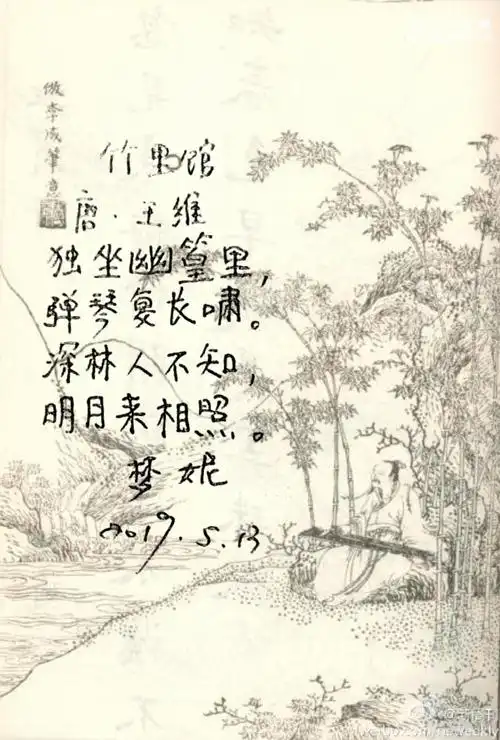 倣李成筆意
竹里馆
唐·王维
独坐幽篁里，
弹琴复长啸。
深林人不知，
明月来相照。
梦妮
2019.5.13